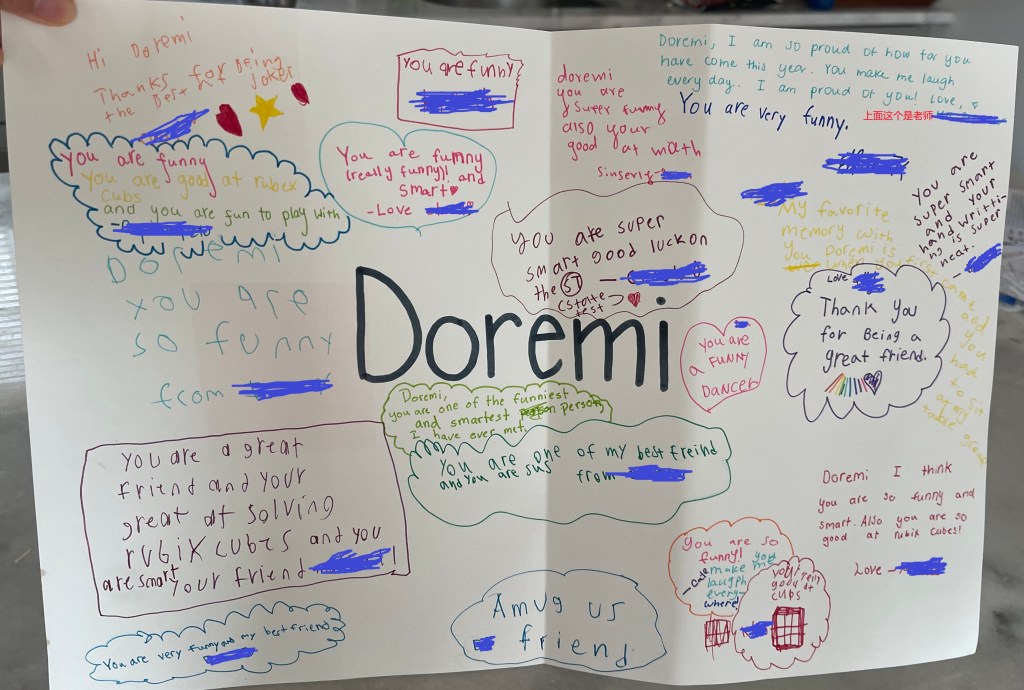 Hi Doremi
Thanks for being
the Best at Jokes
you are funny
doremi
you are
super funny
also your
good at math
Sinserly
Doremi, I am so proud of how far you
have come this year. You make me laugh
every day. I am proud of you! Love,
You are very funny.
上面这个是老师
You are funny
You are good at rubex
cubs
and you are fun to play with
You are funny
(really funny)! and
smart
-Love
You are super
smart good luck on
the ST
(state
test
You are
super smart
and your
hand writti-
ng is super
neat.
My favorite
memory with
you Doremi is
when you first
came and you
had to sit
at my
table group
Love
Doremi
you are
so funny
from
Doremi
You are
a FUNNY
DANCER
Thank you
for Being a
great friend.
Doremi,
you are one of the funniest
and smartest person,
I have ever met.
You are one of my best freind
and you are sus
from
you are a great
friend and your
great at solving
rubix cubes and you
are smart
your friend !
Doremi I think
you are so funny and
smart. Also you are so
good at rubix cubes!
Love -
You are so
funny! you
make me
laugh
every-
where
good at
cups
Amug us
friend
You are very funny and my best friend